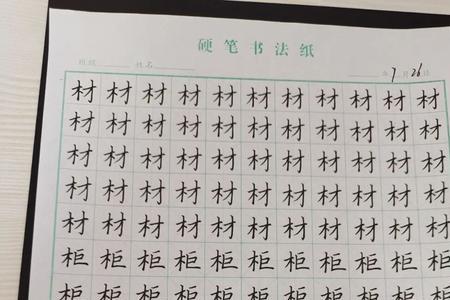 硬笔书法纸
班级 姓名 年 7 月 26 日
材 材 材 材 材 材 材 材 材 材 材
材 材 材 材 材 材 材 材 材 材 材
材 材 材 材 材 材 材 材 材 材 材
材 材 材 材 材 材 材 材 材 材 材
材 材 材 材 材 材 材 材 材 材 材
柜 柜 柜 柜 柜 柜 柜 柜 柜 柜 柜
柜 柜 柜 柜 柜 柜 柜 柜 柜 柜 柜